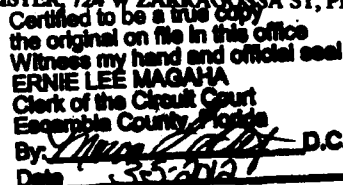 724 W ZARRAGOSSA ST, P
Certified to be a true copy
the original on file in this office
Witness my hand and official seal
ERNIE LEE MAGAHA
Clerk of the Circuit Court
Escambia County, Florida
By: D.C.
Date 3-5-2012